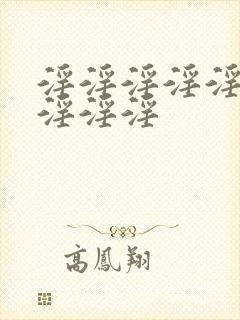 淫淫淫淫淫
淫淫淫
高鳳翔